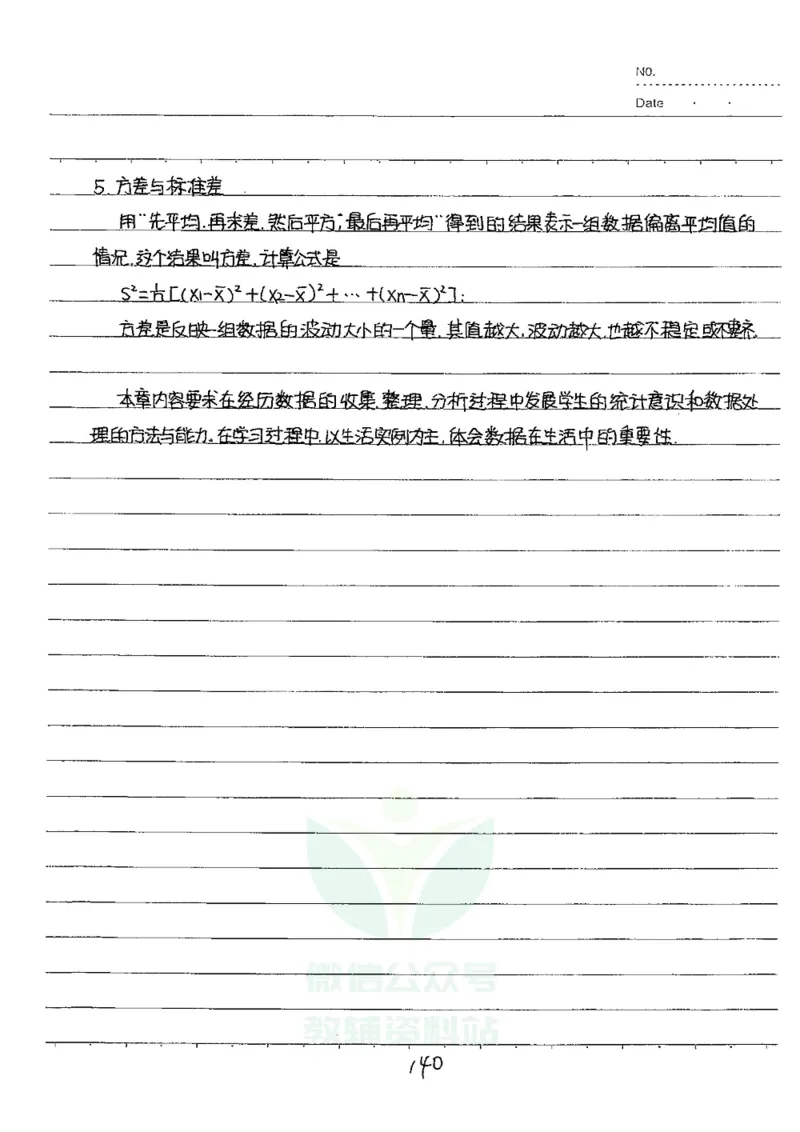 NO.
Date · ·
5. 方差与标准差
用“先平均,再求差,然后平方,最后再平均”得到的结果表示一组数据偏离平均值的
情况,这个结果叫方差,计算公式是
S²=1/n[(x₁-x̄)²+(x₂-x̄)²+…+(xn-x̄)²];
方差是反映一组数据的波动大小的一个量,其值越大,波动越大,也越不稳定或不整齐.
本章内容要求在经历数据的收集,整理,分析过程中发展学生的统计意识和数据处
理的方法与能力。在学习过程中,以生活实例为主,体会数据在生活中的重要性.
微信公众号
教辅资料站
140